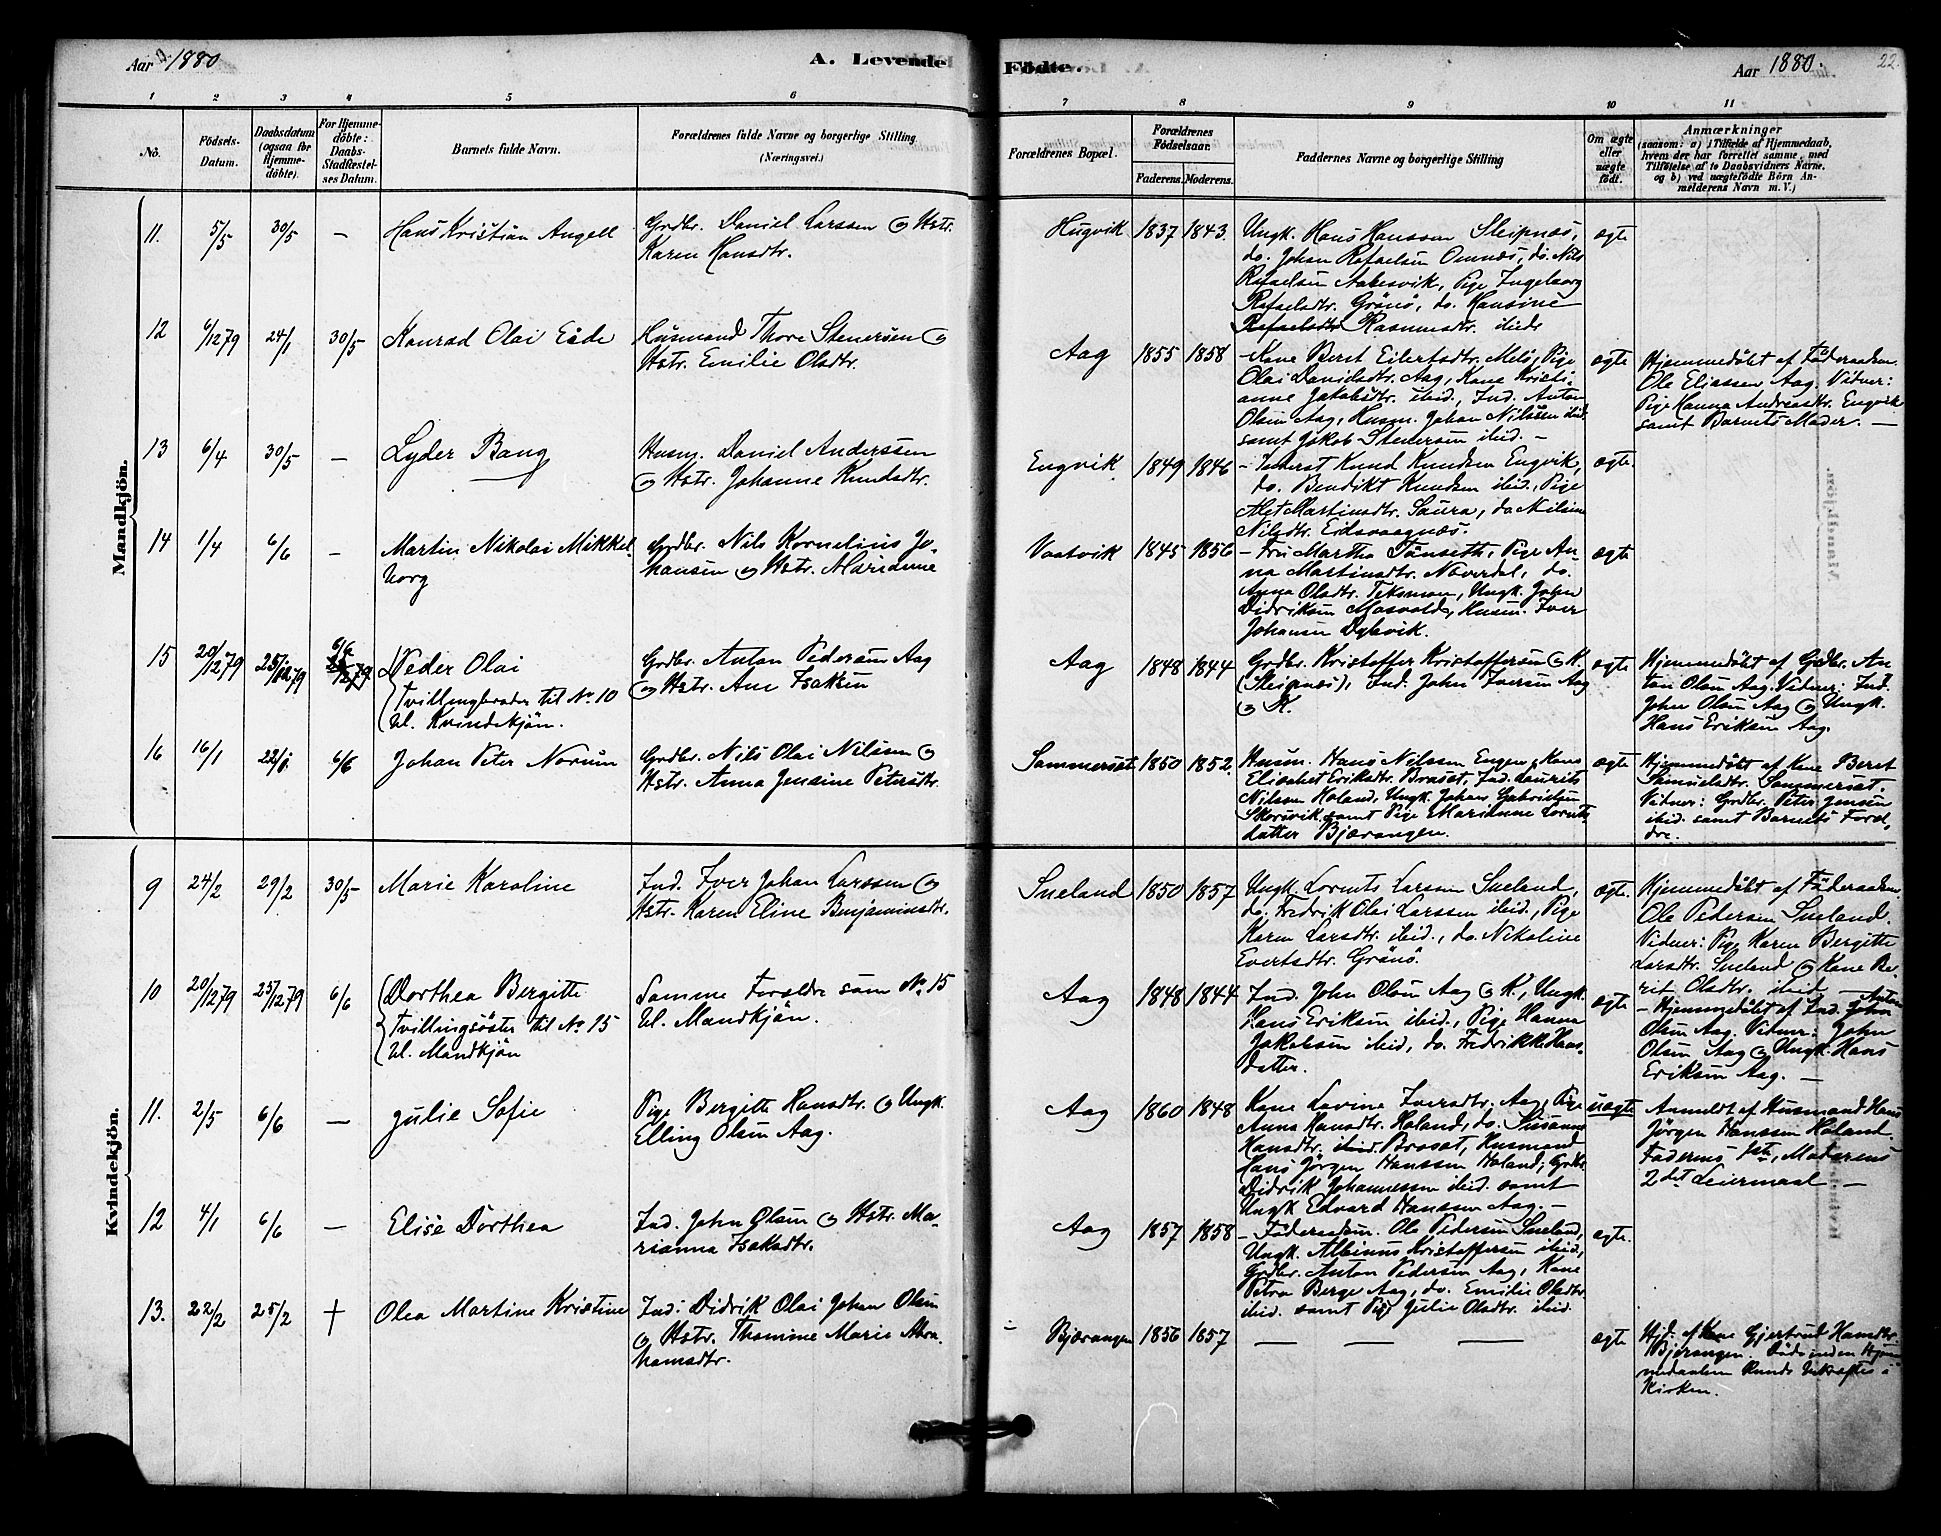 Aar 1880
A. Levende
Födte.
Aar 1880.
22.
1 2 3 4 5 6 7 8 9 10 11
No.
Födsels-
Datum.
Daabsdatum
(ogsaa for
Hjemme-
döbte).
For Hjemme-
döbte:
Daabs-
Stadfæstel-
ses Datum.
Barnets fulde Navn.
Forældrenes fulde Navne og borgerlige Stilling
(Næringsvei.)
Forældrenes Bopæl.
Forældrenes
Födselsaar.
Faderens. Moderens.
Faddernes Navne og borgerlige Stilling
Om ægte
eller
uægte
födt.
Anmærkninger
(saasom: a) i Tilfælde af Hjemmedaab,
hvem der har forrettet samme, med
Tilföielse af to Daabsvidners Navne,
og b) ved uægtefödte Börn An-
melderens Navn m. V.)
Mandkjön.
11. 5/5 30/5 — Hans Kristian Angell
Grdbr. Daniel Larssen og Hstr.
Karen Hansdtr.
Hugvik 1837 1843.
Ungk. Hans Hanssen Sleipnæs,
do. Johan Rafaelsen Omnæs, do. Nils
Rafaelsen Aakesvik, Pige Ingeborg
Rafaelsdtr. Grönö, do. Hansine
Rafaelsdtr Rasmusdtr. ibid.
ægte
12 6/12 79 24/1 30/5 Konrad Olai Eide
Husmand Thore Stenersen og
Hstr. Emilie Olsdtr.
Aag 1855 1858
- Kone Berit Eilertsdtr. Melö, Pige
Olai Danielsdtr. Aag, Kone Kristi-
anne Jakobsdtr. ibid., Ind. Anton
Olsen Aag, Husm. Johan Nilssen ibid.
samt Jakob Stenersen ibid. -
ægte
Hjemmedöbt af Föderaadsm.
Ole Eliassen Aag. Vidner:
Pige Hanna Andreasdtr. Engvik
samt Barnets Moder. —
13 6/4 30/5 — Lyder Bang
Husm. Daniel Anderssen
og Hstr. Johanne Knudsdtr.
Engvik 1849 1846
- Inderst Knud Knudsen Engvik,
do. Bendikt Knudsen ibid., Pige
Alet Martinsdtr. Saura, do Nilsine
Nilsdtr. Eidsvaagnæs.
ægte.
14 1/4 6/6 — Martin Nikolai Mikkel
borg
Grdbr. Nils Kornelius Jo-
hansen og Hstr. Marianne
Vaatvik 1845 1856
- Fru Martha Tönseth, Pige An-
na Martinsdtr. Neverdal, do.
Anna Olsdtr. Teksmon, Ungk. John
Didriksen Mosvold, Husm. Iver
Johansen Dybvik.
ægte
15 20/12 79 25/12 79 6/6 Peder Olai
Tvillingbroder til No. 10
bl. Kvindekjön.
Grdbr. Anton Pedersen Aag
og Hstr. Ane Isaksen
Aag 1848 1844
Grdbr. Kristoffer Kristoffersen og K.
(Sleipnæs), Ind. John Iversen Aag
og K.
ægte
Hjemmedöbt af Grdbr. An-
ton Olsen Aag. Vidner: Ind.
John Olsen Aag og Ungk.
Hans Eriksen Aag.
16 16/1 22/1 6/6 Johan Peter Norum
Grdbr. Nils Olai Nilssen og
Hstr. Anna Jensine Petersdtr.
Sommerset 1850 1852.
Husm. Hans Nilssen Engen, Kone
Elisabet Eriksdtr. Braset, Ind. Laurits
Nilssen Holand, Ungk. Johan Gabrielsen
Skorivik samt Pige Marianne Lornts
datter Bjærangen.
ægte
Hjemmedöbt af Kone Berit
Samuelsdtr. Sommerset.
Vidner: Grdbr. Peter Jensen
ibid. samt Barnets Foræl-
dre.
Kvindekjön.
9 24/2 29/2 30/5 Marie Karoline
Ind. Iver Johan Larssen og
Hstr. Karen Eline Benjaminsdtr.
Sneland 1850 1857
Ungk. Lornts Larssen Sneland,
do. Fredrik Olai Larssen ibid., Pige
Karen Larsdtr. ibid., do. Nikoline
Evertsdtr. Grönö.
ægte.
Hjemmedöbt af Föderaadsm.
Ole Pedersen Sneland.
Vidner: Pige Karen Bergitte
Larsdtr. Sneland og Kone Be-
rit Olsdtr. ibid —
10 20/12 79 25/12 79 6/6 Dorthea Bergitte
Tvillingsöster til No. 15
bl. Mandkjön
Samme Forældre som No. 15
bl. Mandkjön.
Aag 1848 1844
Ind. John Olsen Aag og K., Ungk.
Hans Eriksen ibid., Pige Hanna
Jakobsen ibid, do. Fredrikke Hans-
datter.
ægte
- Hjemmedöbt af Ind. John Anton
Olsen Aag. Vidner: John
Olsen Aag og Ungk. Hans
Eriksen Aag. —
11. 2/5 6/6 — Julie Sofie
Pige Bergitte Hansdtr. og Ungk.
Elling Olsen Aag.
Aag 1860 1848
Kone Lovine Iversdtr. Aag, Pige
Anna Hansdtr. Holand, do. Susanna
Hansdtr. ibid. Braset, Husmand
Hans Jörgen Hanssen Holand, Grdbr.
Didrik Johannessen ibid. samt
Ungk Edvard Hanssen Aag. -
uægte
Anmeldt af Husmand Hans
Jörgen Hanssen Holand.
Faderens 1ste, Moderens
2det Leiermaal —
12 4/1 6/6 — Elise Dorthea
Ind. John Olsen og Hstr. Ma-
rianna Isaksdtr.
Aag 1857 1858
- Föderaadsm. Ole Pedersen Sneland,
Ungk. Albinus Kristoffersen ibid,
Grdbr. Anton Pedersen Aag, Kone
Petra Berge Aag, do. Emilie Olsdtr.
ibid. samt Pige Julie Olsdtr. ibid.
ægte.
13. 22/2 25/2 † Olea Martine Kristine
Ind. Didrik Olai Johan Olsen
og Hstr. Thomine Marie Abra
hamsdtr.
Bjærangen 1856 1857 — — —
ægte
Hjd. af Kone Gjertrud Hansdtr.
Bjerangen. Döde inden Hjem
medaaben kunde bekræftes i
Kirken.